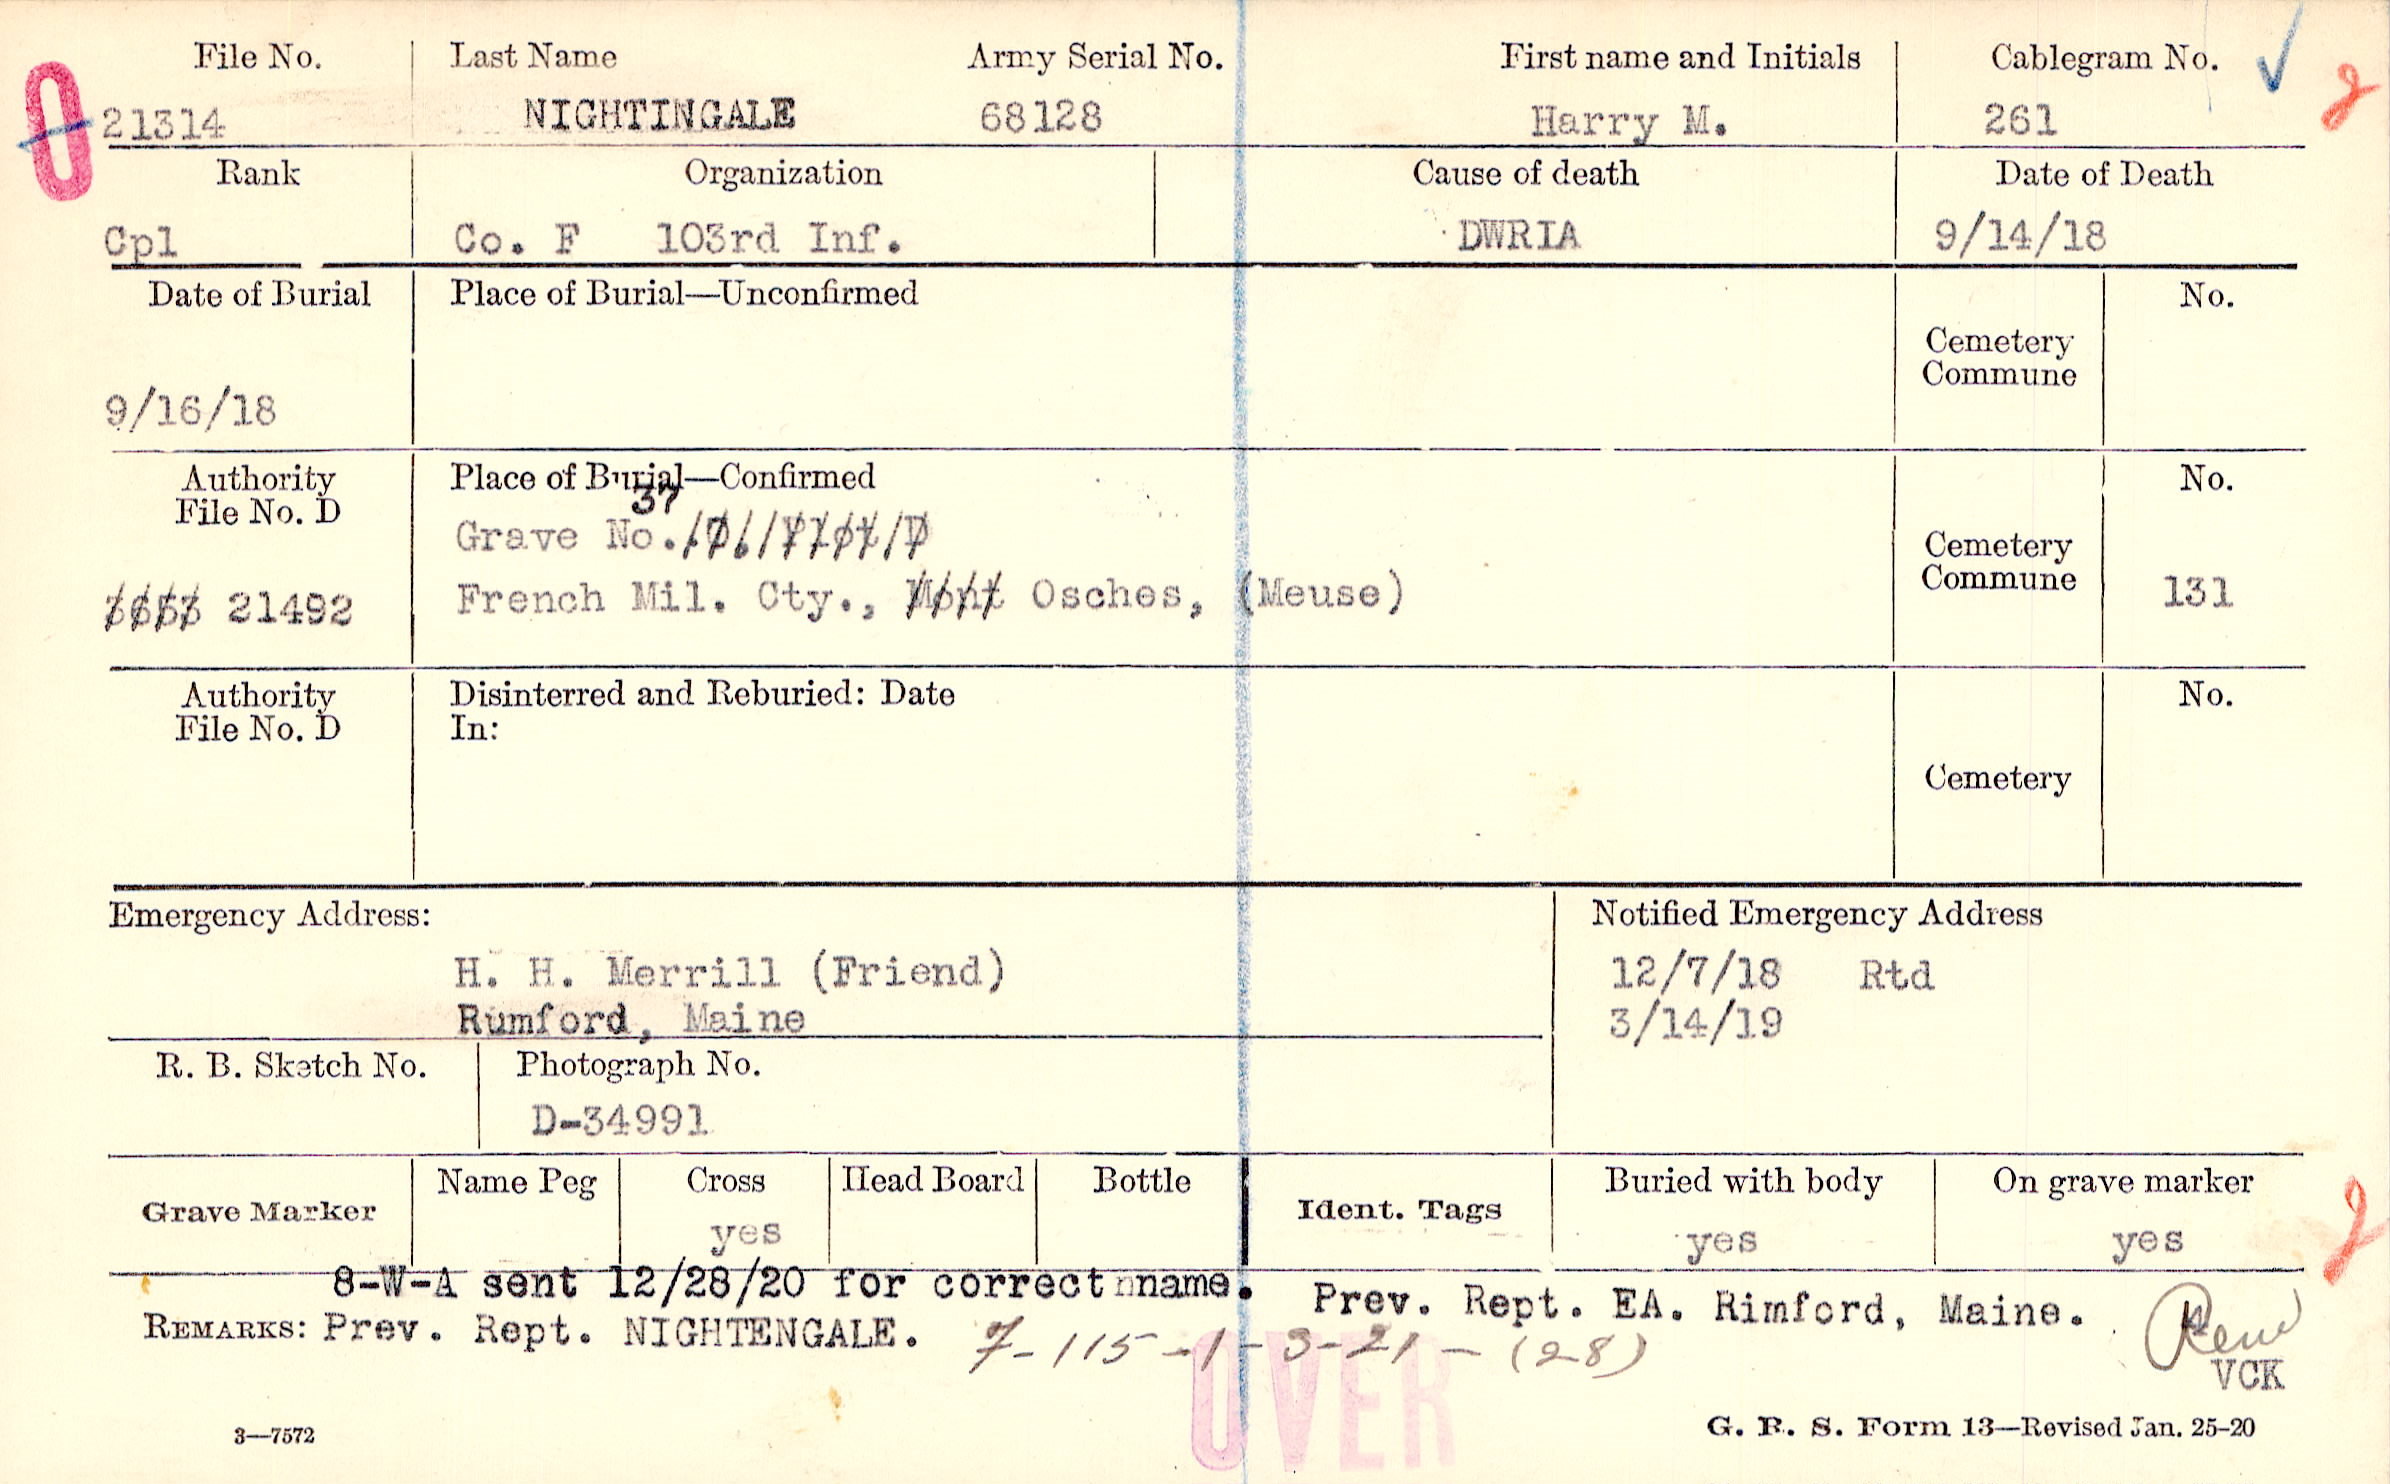 File No. Last Name Army Serial No. First name and Initials Cablegram No.
0 21314 NIGHTINGALE 68128 Harry M. 261
Rank Organization Cause of death Date of Death
Cpl Co. F 103rd Inf. DWRIA 9/14/18
Date of Burial Place of Burial—Unconfirmed No.
Cemetery
Commune
9/16/18
Authority Place of Burial—Confirmed No.
File No. D
37
Grave No. 10. Plot D
Cemetery
Commune 131
3653 21492 French Mil. Cty., Mont Osches, (Meuse)
Authority Disinterred and Reburied: Date No.
File No. D In:
Cemetery
Emergency Address: Notified Emergency Address
H. H. Merrill (Friend) 12/7/18 Rtd
Rumford, Maine 3/14/19
R. B. Sketch No. Photograph No.
D-34991
Grave Marker Name Peg Cross Head Board Bottle Ident. Tags Buried with body On grave marker
yes yes yes
8-W-A sent 12/28/20 for correct nname. Prev. Rept. EA. Rimford, Maine.
REMARKS: Prev. Rept. NIGHTENGALE. 7-115-1-3-21-(28)
VCK
OVER
3—7572 G. R. S. Form 13—Revised Jan. 25-20